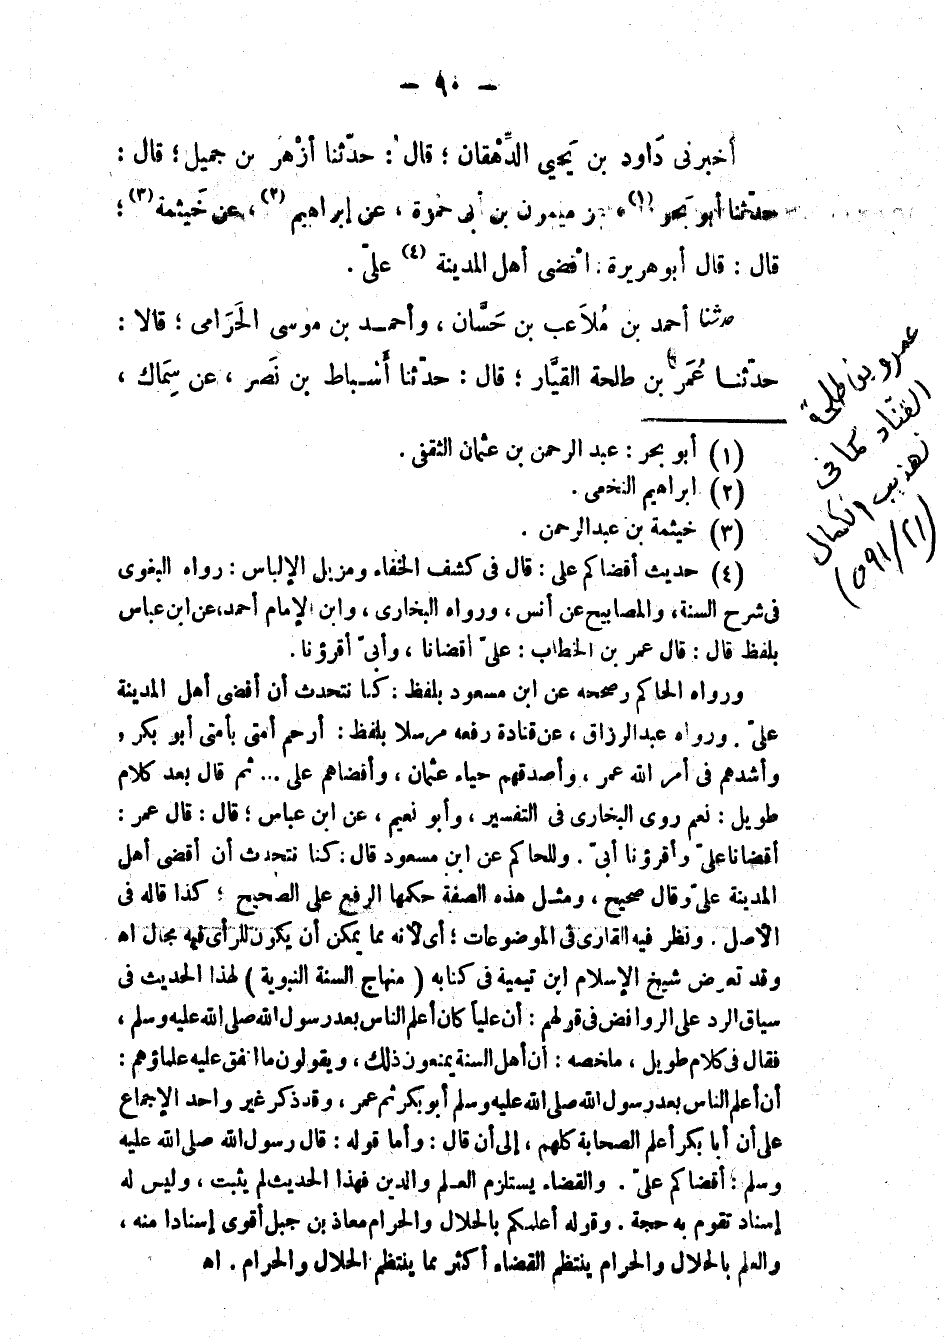 — ٩٠ —
أخبرنى دَاود بن يَحيى الدِّهْقان ؛ قال : حدّثنا أزْهَر بن جميل ؛ قال :
حدّثنا أبو بَحر (١) ، عن ميمون بن أبى حمزة ، عن إبراهيم (٢) ، عن خَيثمة (٣) ؛
قال : قال أبو هريرة : أقضى أهل المدينة (٤) علىّ .
حدثنا أحمد بن مُلاَعب بن حَسَّان ، وأحمــد بن موسى الحَرَامى ؛ قالا :
حدّثنــا عُمَر بن طلحة القيَّار ؛ قال : حدّثنا أَسْـباط بن نَصر ، عن سِمَاك ،
(١) أبو بحر : عبد الرحمن بن عثمان الثقفى .
(٢) ابراهيم النخعى .
(٣) خيثمة بن عبدالرحمن .
(٤) حديث أقضاكم على : قال فى كشف الخفاء ومزيل الإلباس : رواه البغوى
فى شرح السنة، والمصابيح عن أنس ، ورواه البخارى ، وابن الإمام أحمد،عن ابن عباس
بلفظ قال : قال عمر بن الخطاب : علىّ أقضانا ، وأبىّ أقرؤنا .
ورواه الحاكم وصححه عن ابن مسعود بلفظ : كنا نتحدث أن أقضى أهل المدينة
علىّ . ورواه عبدالرزاق ، عن قتادة رفعه مرسلا بلفظ : أرحم أمتى بأمتى أبو بكر و
وأشدهم فى أمر الله عمر ، وأصدقهم حياء عثمان ، وأقضاهم على ... ثم قال بعد كلام
طويل : نعم روى البخارى فى التفسير ، وأبو نعيم ، عن ابن عباس ؛ قال : قال عمر :
أقضانا علىّ وأقرؤنا أبىّ . وللحاكم عن ابن مسعود قال : كنا نتحدث أن أقضى أهل
المدينة علىّ وقال صحيح ، ومثـل هذه الصفة حكمها الرفع على الصحيح ؛ كذا قاله فى
الأصل . ونظر فيه القارى فى الموضوعات ؛ أى لأنه مما يمكن أن يكون للرأى فيه مجال اه
وقد تعرض شيخ الإسلام ابن تيمية فى كتابه ( منهاج السنة النبوية ) لهذا الحديث فى
سياق الرد على الروافض فى قولهم : أن علياً كان أعلم الناس بعد رسول الله صلى الله عليه وسلم ،
فقال فى كلام طويل ، ملخصه : أن أهل السنة يمنعون ذلك ، ويقولون ما اتفق عليه علماؤهم :
أن أعلم الناس بعد رسول الله صلى الله عليه وسلم أبو بكر ثم عمر ، وقد ذكر غير واحد الإجماع
على أن أبا بكر أعلم الصحابة كلهم ، إلى أن قال : وأما قوله : قال رسول الله صلى الله عليه
وسلم : أقضاكم علىّ . والقضاء يستلزم العـلم والدين فهذا الحديث لم يثبت ، وليس له
إسناد تقوم به حجة . وقوله أعلمكم بالحلال والحرام معاذ بن جبل أقوى إسنادا منه ،
والعلم بالحلال والحرام ينتظم القضاء أكثر مما ينتظم الحلال والحرام . اه
عمرو بن طلحة
القناد كما فى
تهذيب الكمال
(٥٩١/٢١)